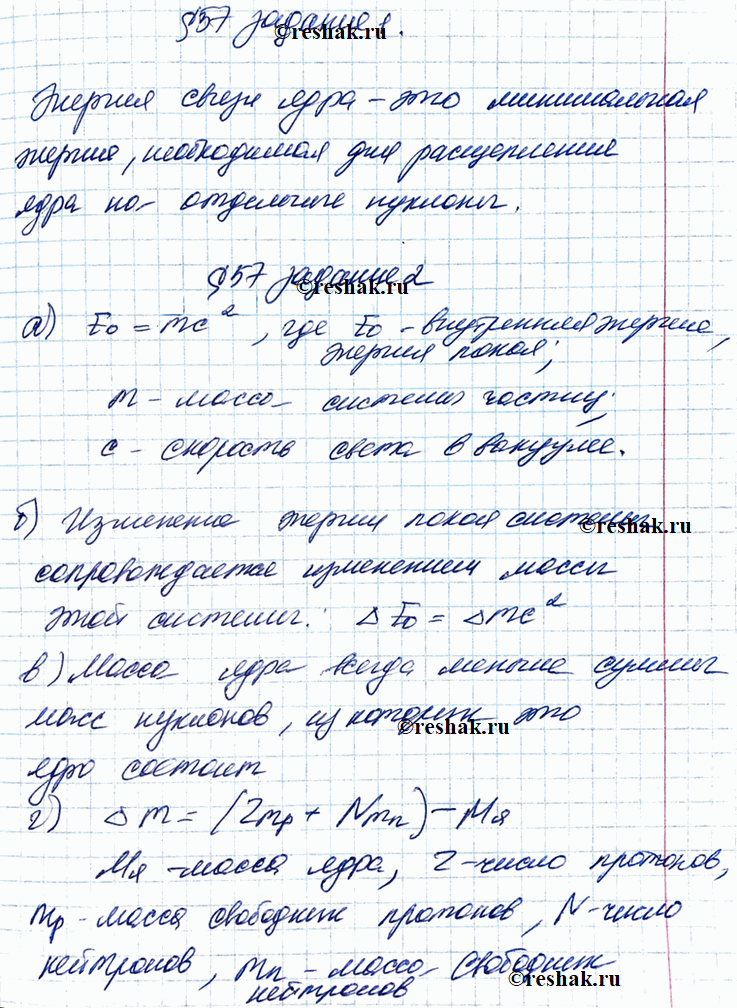 §57 задание 1.
©reshak.ru
Энергия связи ядра – это минимальная
энергия, необходимая для расщепления
ядра на отдельные нуклоны.
§57 задание 2
©reshak.ru
а) E₀ = mc², где E₀ - внутренняя энергия,
энергия покоя;
m - масса системы частиц;
c - скорость света в вакууме.
б) Изменение энергии покоя системы
©reshak.ru
сопровождается изменением массы
этой системы: ΔE₀ = Δmc²
в) Масса ядра всегда меньше суммы
масс нуклонов, из которых это
©reshak.ru
ядро состоит
г) Δm = (Zmp + Nmn) – Mя
Mя - масса ядра, Z - число протонов,
mp - масса свободных протонов, N - число
нейтронов, mn - масса свободных
нейтронов